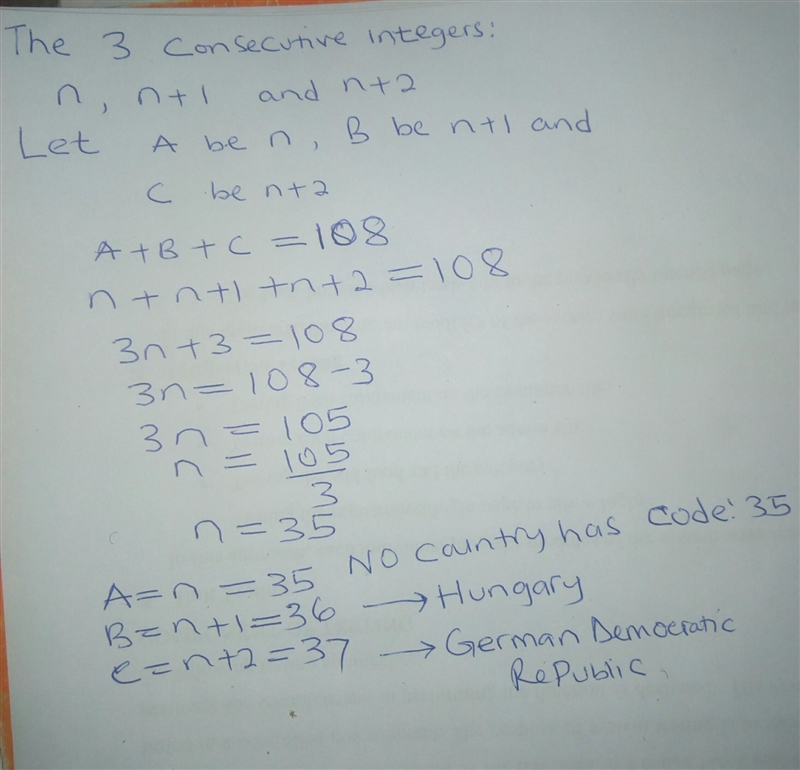 The 3 Consecutive integers:
n, n+1 and n+2
Let A be n, B be n+1 and
C be n+2
A+B+C=108
n+n+1+n+2=108
3n+3=108
3n=108-3
3n=105
n=105/3
n=35
A=n=35 NO country has code: 35
B=n+1=36 → Hungary
C=n+2=37 → German Democratic
Republic.